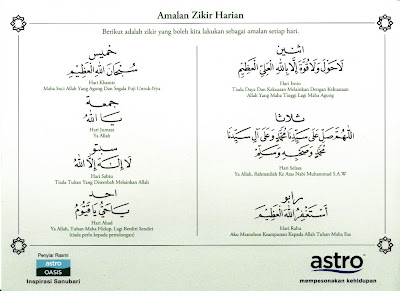 Amalan Zikir Harian
Berikut adalah zikir yang boleh kita lakukan sebagai amalan setiap hari.
خميس
سُبْحَانَ اللهِ الْعَظِيْمِ
Hari Khamis
Maha Suci Allah Yang Agung Dan Segala Puji Untuk-Nya
جمعة
يَا اَللهُ
Hari Jumaat
Ya Allah
سبتو
لَا إِلَهَ إِلَّا اللهُ
Hari Sabtu
Tiada Tuhan Yang Disembah Melainkan Allah
احد
يَا حَيُّ يَا قَيُّوْمُ
Hari Ahad
Ya Allah, Tuhan Maha Hidup, Lagi Berdiri Sendiri
(tiada perlu kepada pertolongan)
اثنين
لَاحَوْلَ وَلَا قُوَّةَ إِلَّا بِاللهِ الْعَلِيِّ الْعَظِيْمِ
Hari Isnin
Tiada Daya Dan Kekuatan Melainkan Dengan Kekuasaan
Allah Yang Maha Tinggi Lagi Maha Agung
ثلاثا
اَللّٰهُمَّ صَلِّ عَلَى سَيِّدِنَا مُحَمَّدٍ وَعَلَى آلِ سَيِّدِنَا
مُحَمَّدٍ وَصَحْبِهِ وَسَلِّمْ
Hari Selasa
Ya Allah, Rahmatilah Ke Atas Nabi Muhammad S.A.W
رابو
أَسْتَغْفِرُ اللهَ الْعَظِيْمَ
Hari Rabu
Aku Memohon Keampunan Kepada Allah Tuhan Maha Esa
Penyiar Rasmi
astro
OASIS
Inspirasi Sanubari
astro
mempesonakan kehidupan